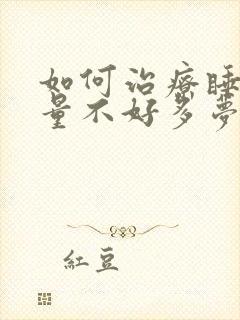 如何治療睡
量不好多夢
紅豆